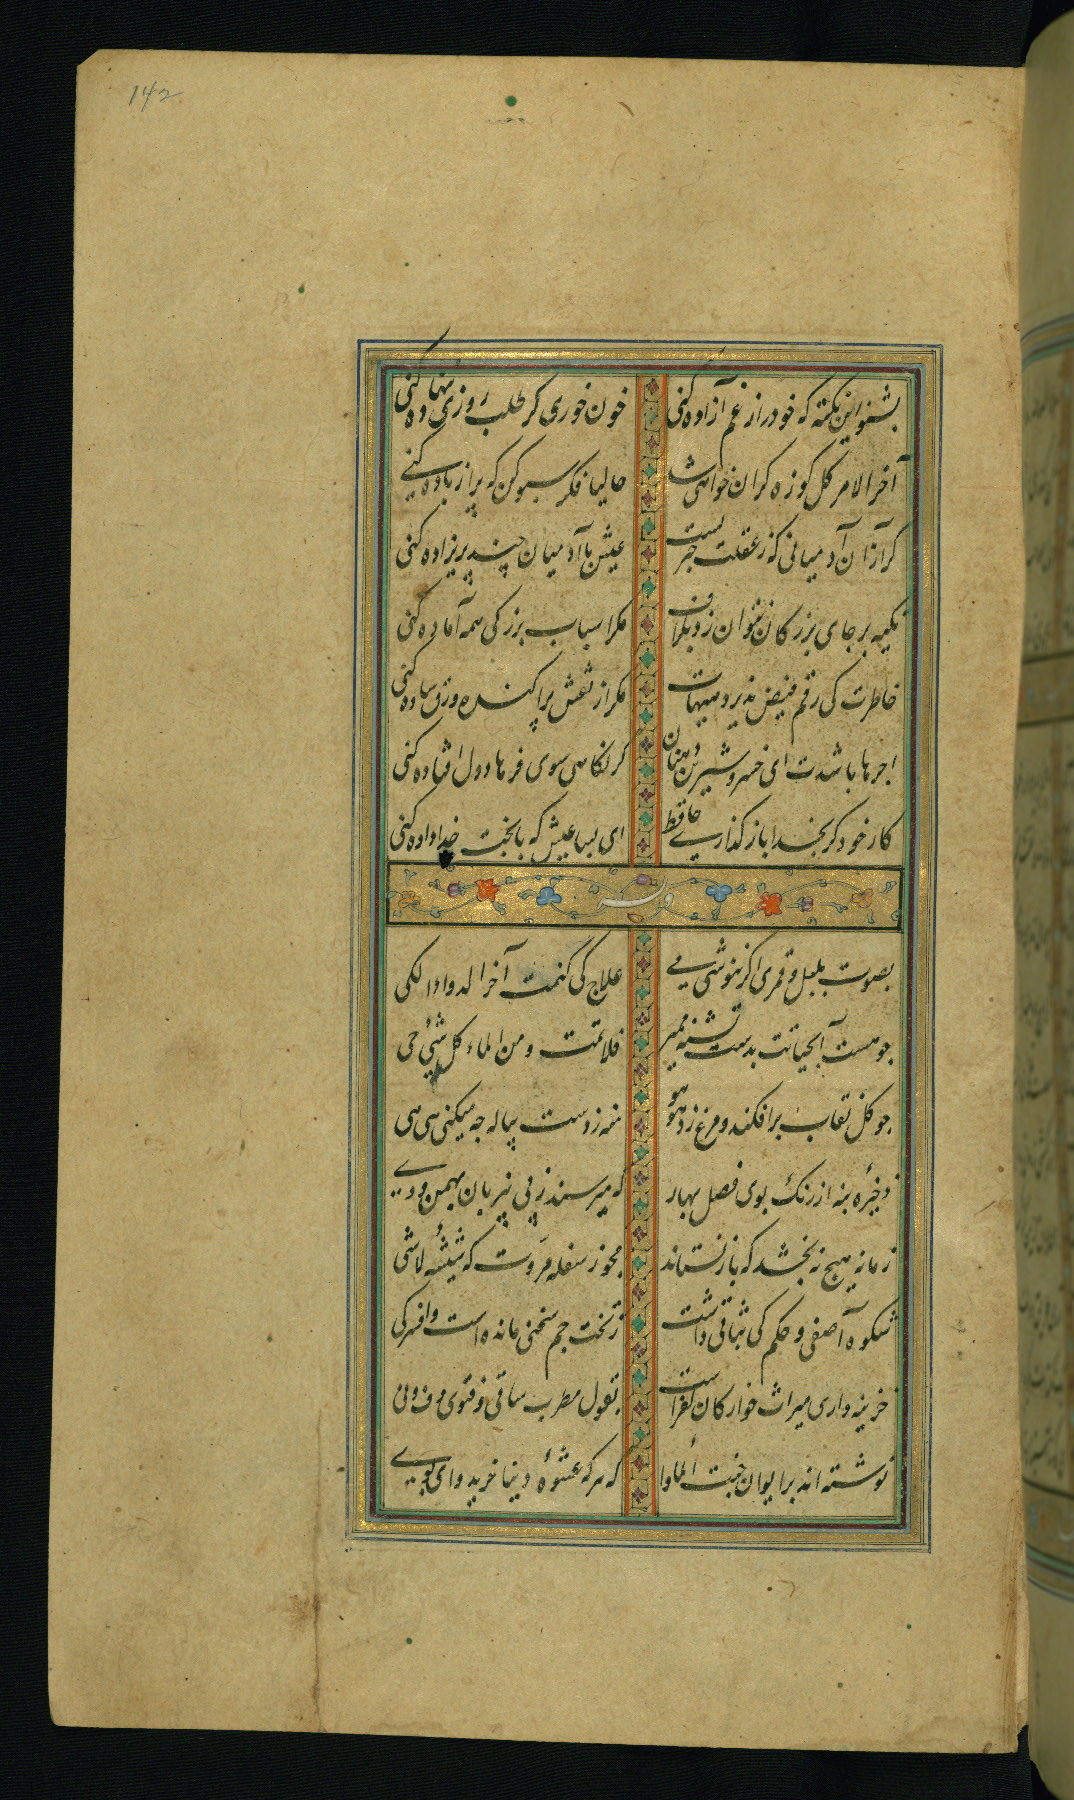 142
بشنو این نکته که خود را ز غم آزاده کنی خون خوری کر طلب روزی ننهاده کنی
آخر الامر کل کوزه کران خواهی شد حالیا فکر سبو کن که پر از باده کنی
کر از آن آدمیانی که ز عقلت خبر است عیش با آدمیان چند پریزاده کنی
تکیه بر جای بزرکان نتوان زد بکزاف مکر اسباب بزرکی همه آماده کنی
خاطرت کی رقم فیض پذیرد هیهات مکر از نقش پراکنده ورق ساده کنی
اجرها باشدت ای خسرو شیرین دهنان کر نکاهی سوی فرهاد دل افتاده کنی
کار خود کر بخدا باز کذاری حافظ ای بسا عیش که با بخت خداداده کنی
وله
بصوت بلبل و قمری اکر ننوشی می علاج کی کنمت آخر الدواء الکی
چو هست آب حیاتت بدست تشنه ممیر فلا تمت و من الماء کل شیٔ حی
چو کل نقاب برافکند و مرغ زد هو هو منه ز دست پیاله چه میکنی هی هی
ذخیرهٔ بنه از رنک بوی فصل بهار که میرسند ز پی بهمن و دی
زمانه هیچ نه بخشد که باز نستاند مجوز سفله مروت که شیئه لاشی
شکوه آصفی و حکم کی ثباتی داشت ز تخت جم سخنی مانده است و افسر کی
خزینه داری میراث خوارکان کفر است بقول مطرب ساقی و فتوی دف و نی
نوشته اند بر ایوان جنت المأوا که هر که عشوهٔ دنیا خرید وای بوی